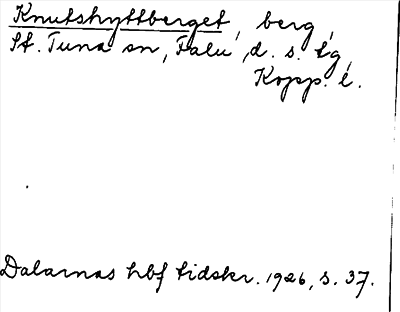 Knutshyttberget, berg,
St. Tuna sn, Falu d. s. tg,
Kopp. l.
Dalarnas hbf tidskr. 1926, s. 37.